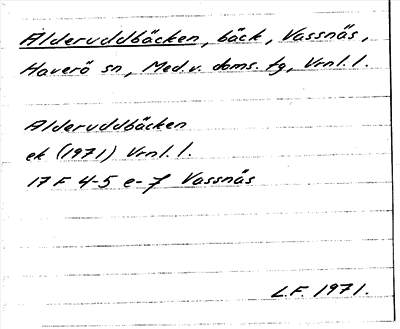 Alderuddbäcken, bäck, Vassnäs,
Haverö sn, Med.v. doms. fg, Vrnl. l.
Alderuddbäcken
ek (1971) Vrnl. l.
17 F 4-5 e-f Vassnäs
L.F. 1971.